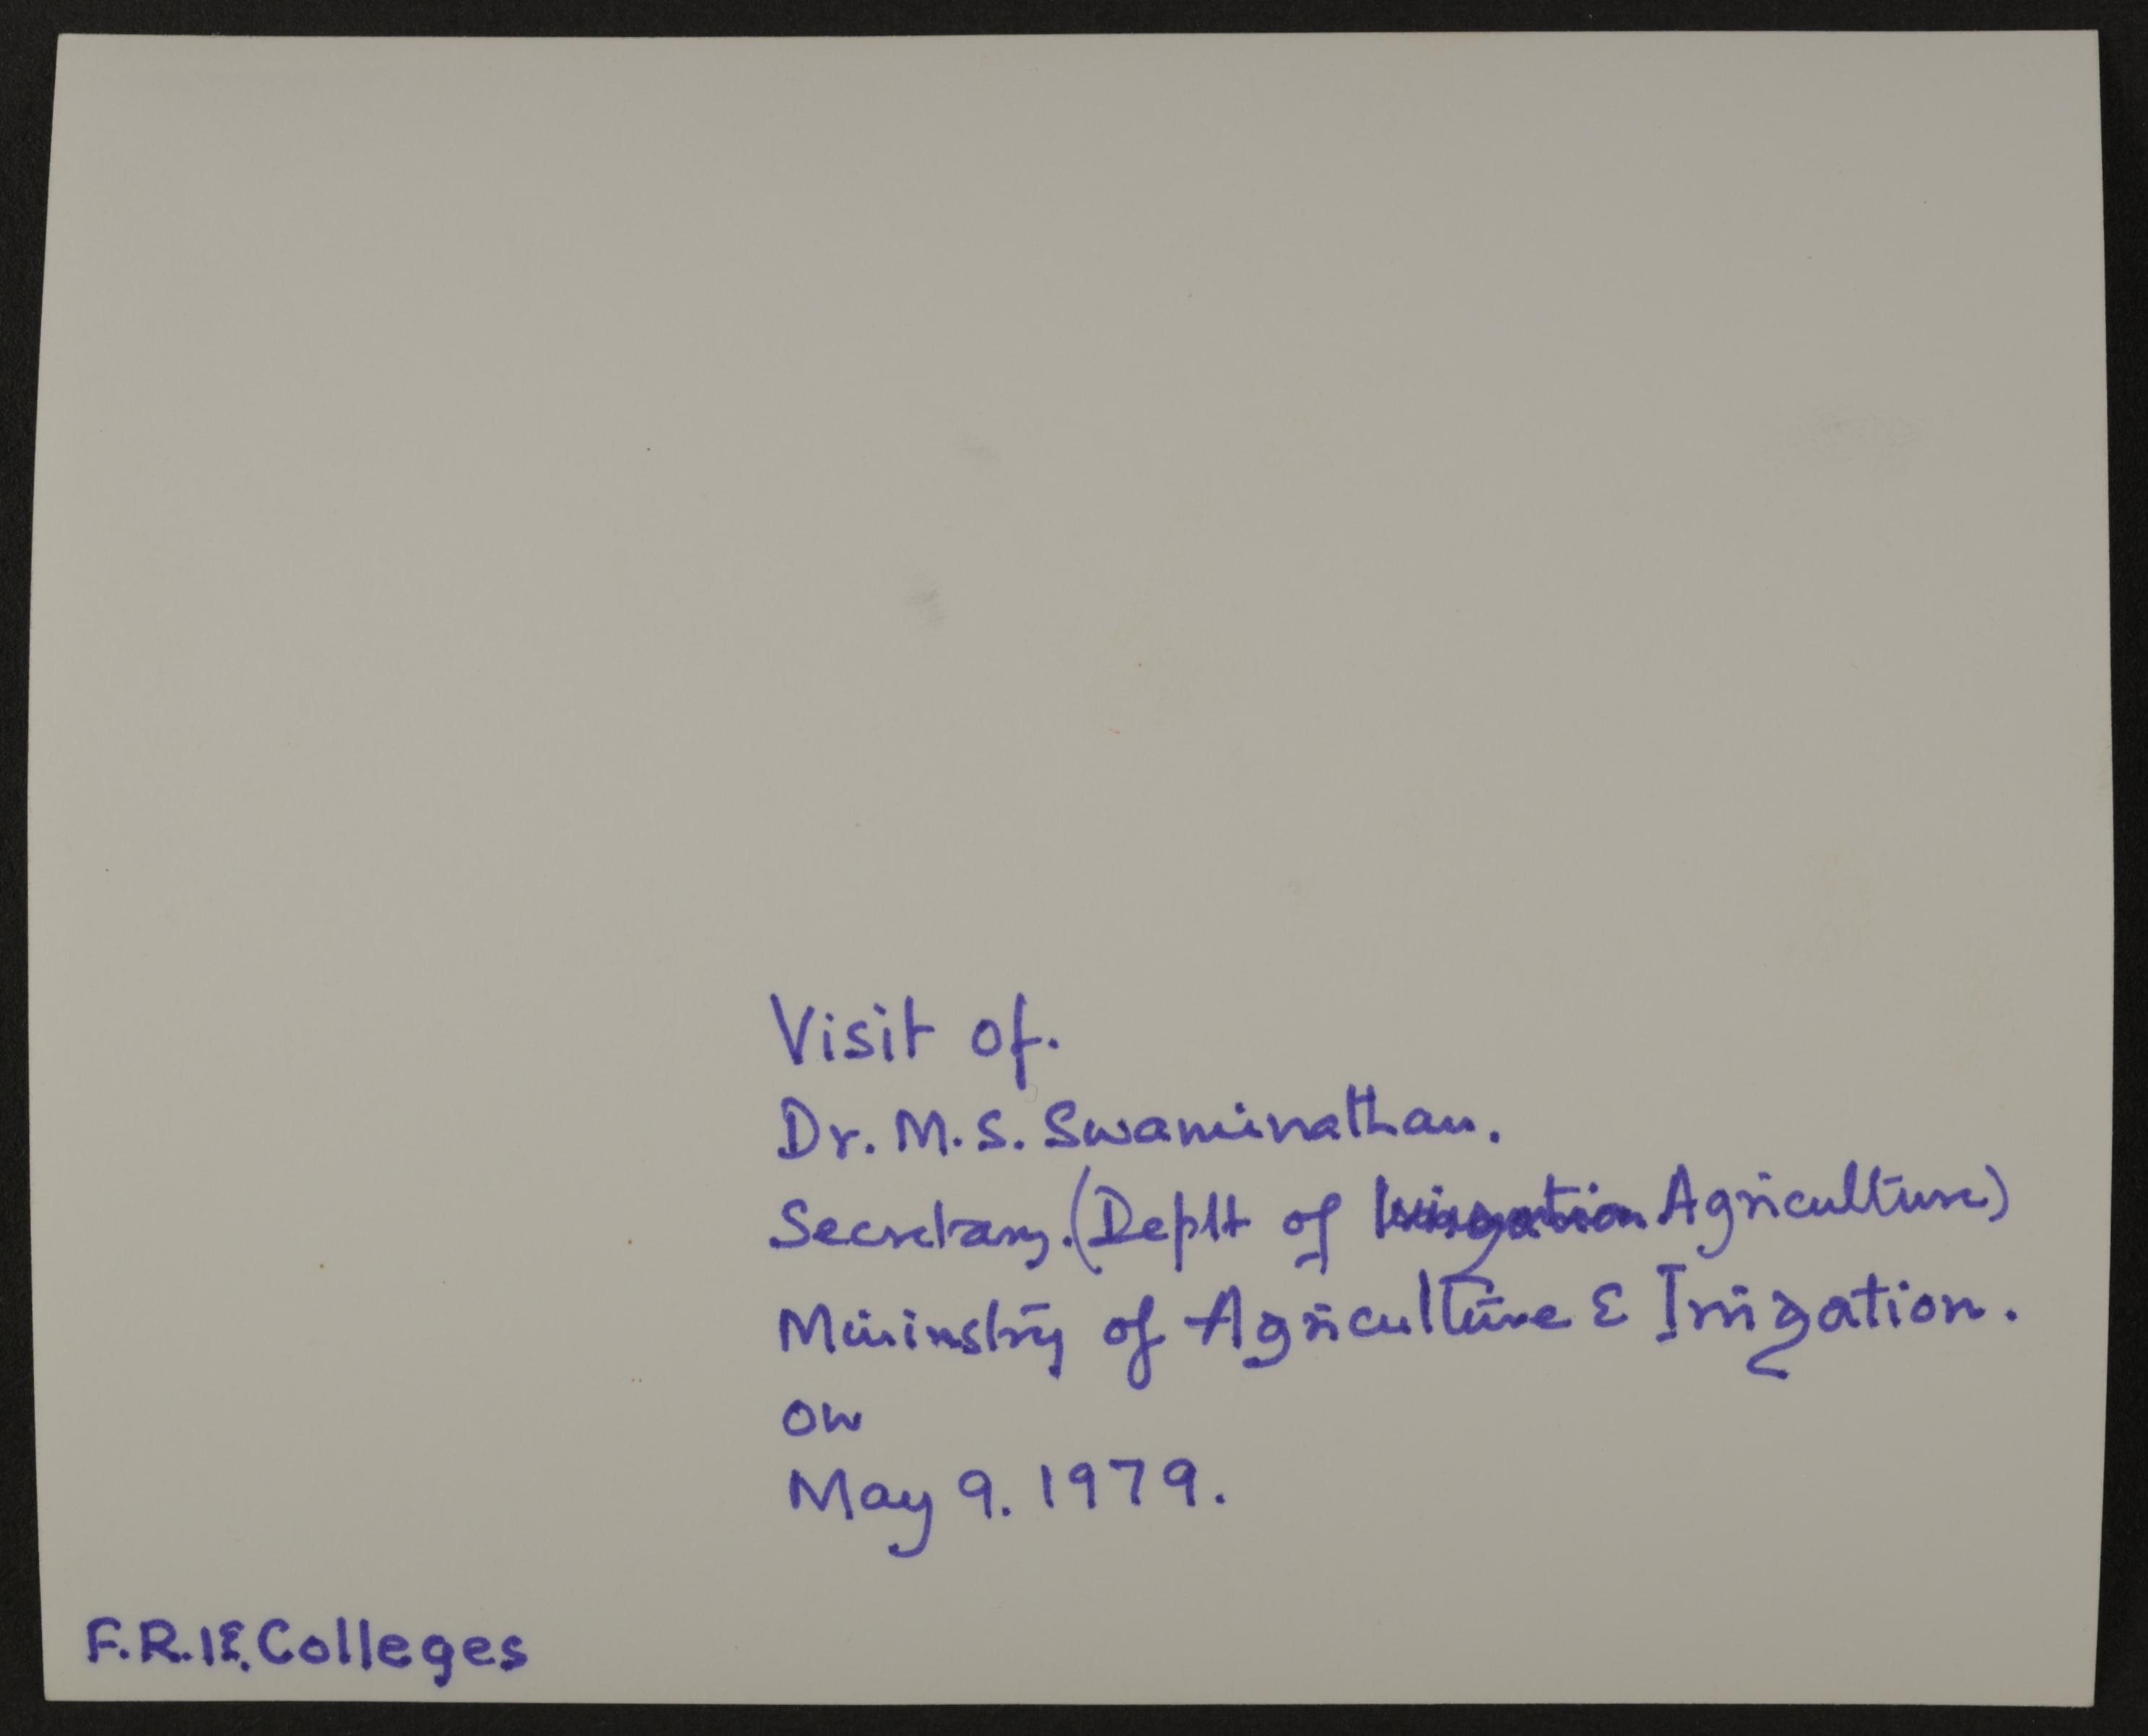 Visit of.
Dr. M.S. Swaminathan.
Secretary. (Deptt of Irrigation Agriculture)
Mininstry of Agriculture & Irrigation.
on
May 9. 1979.
F.R.I & Colleges